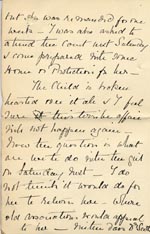 but she was remanded for one
week – I was also asked to
attend the Court next Saturday
& come prepared with some
Home or Protection for her –
The Child is broken
hearted over it all & I feel
sure this terrible affair
will not happen again –
Now the question is what
are we to do with the girl
on Saturday next – I do
not think it would do for
her to return here – where
old associations would appeal
to her –